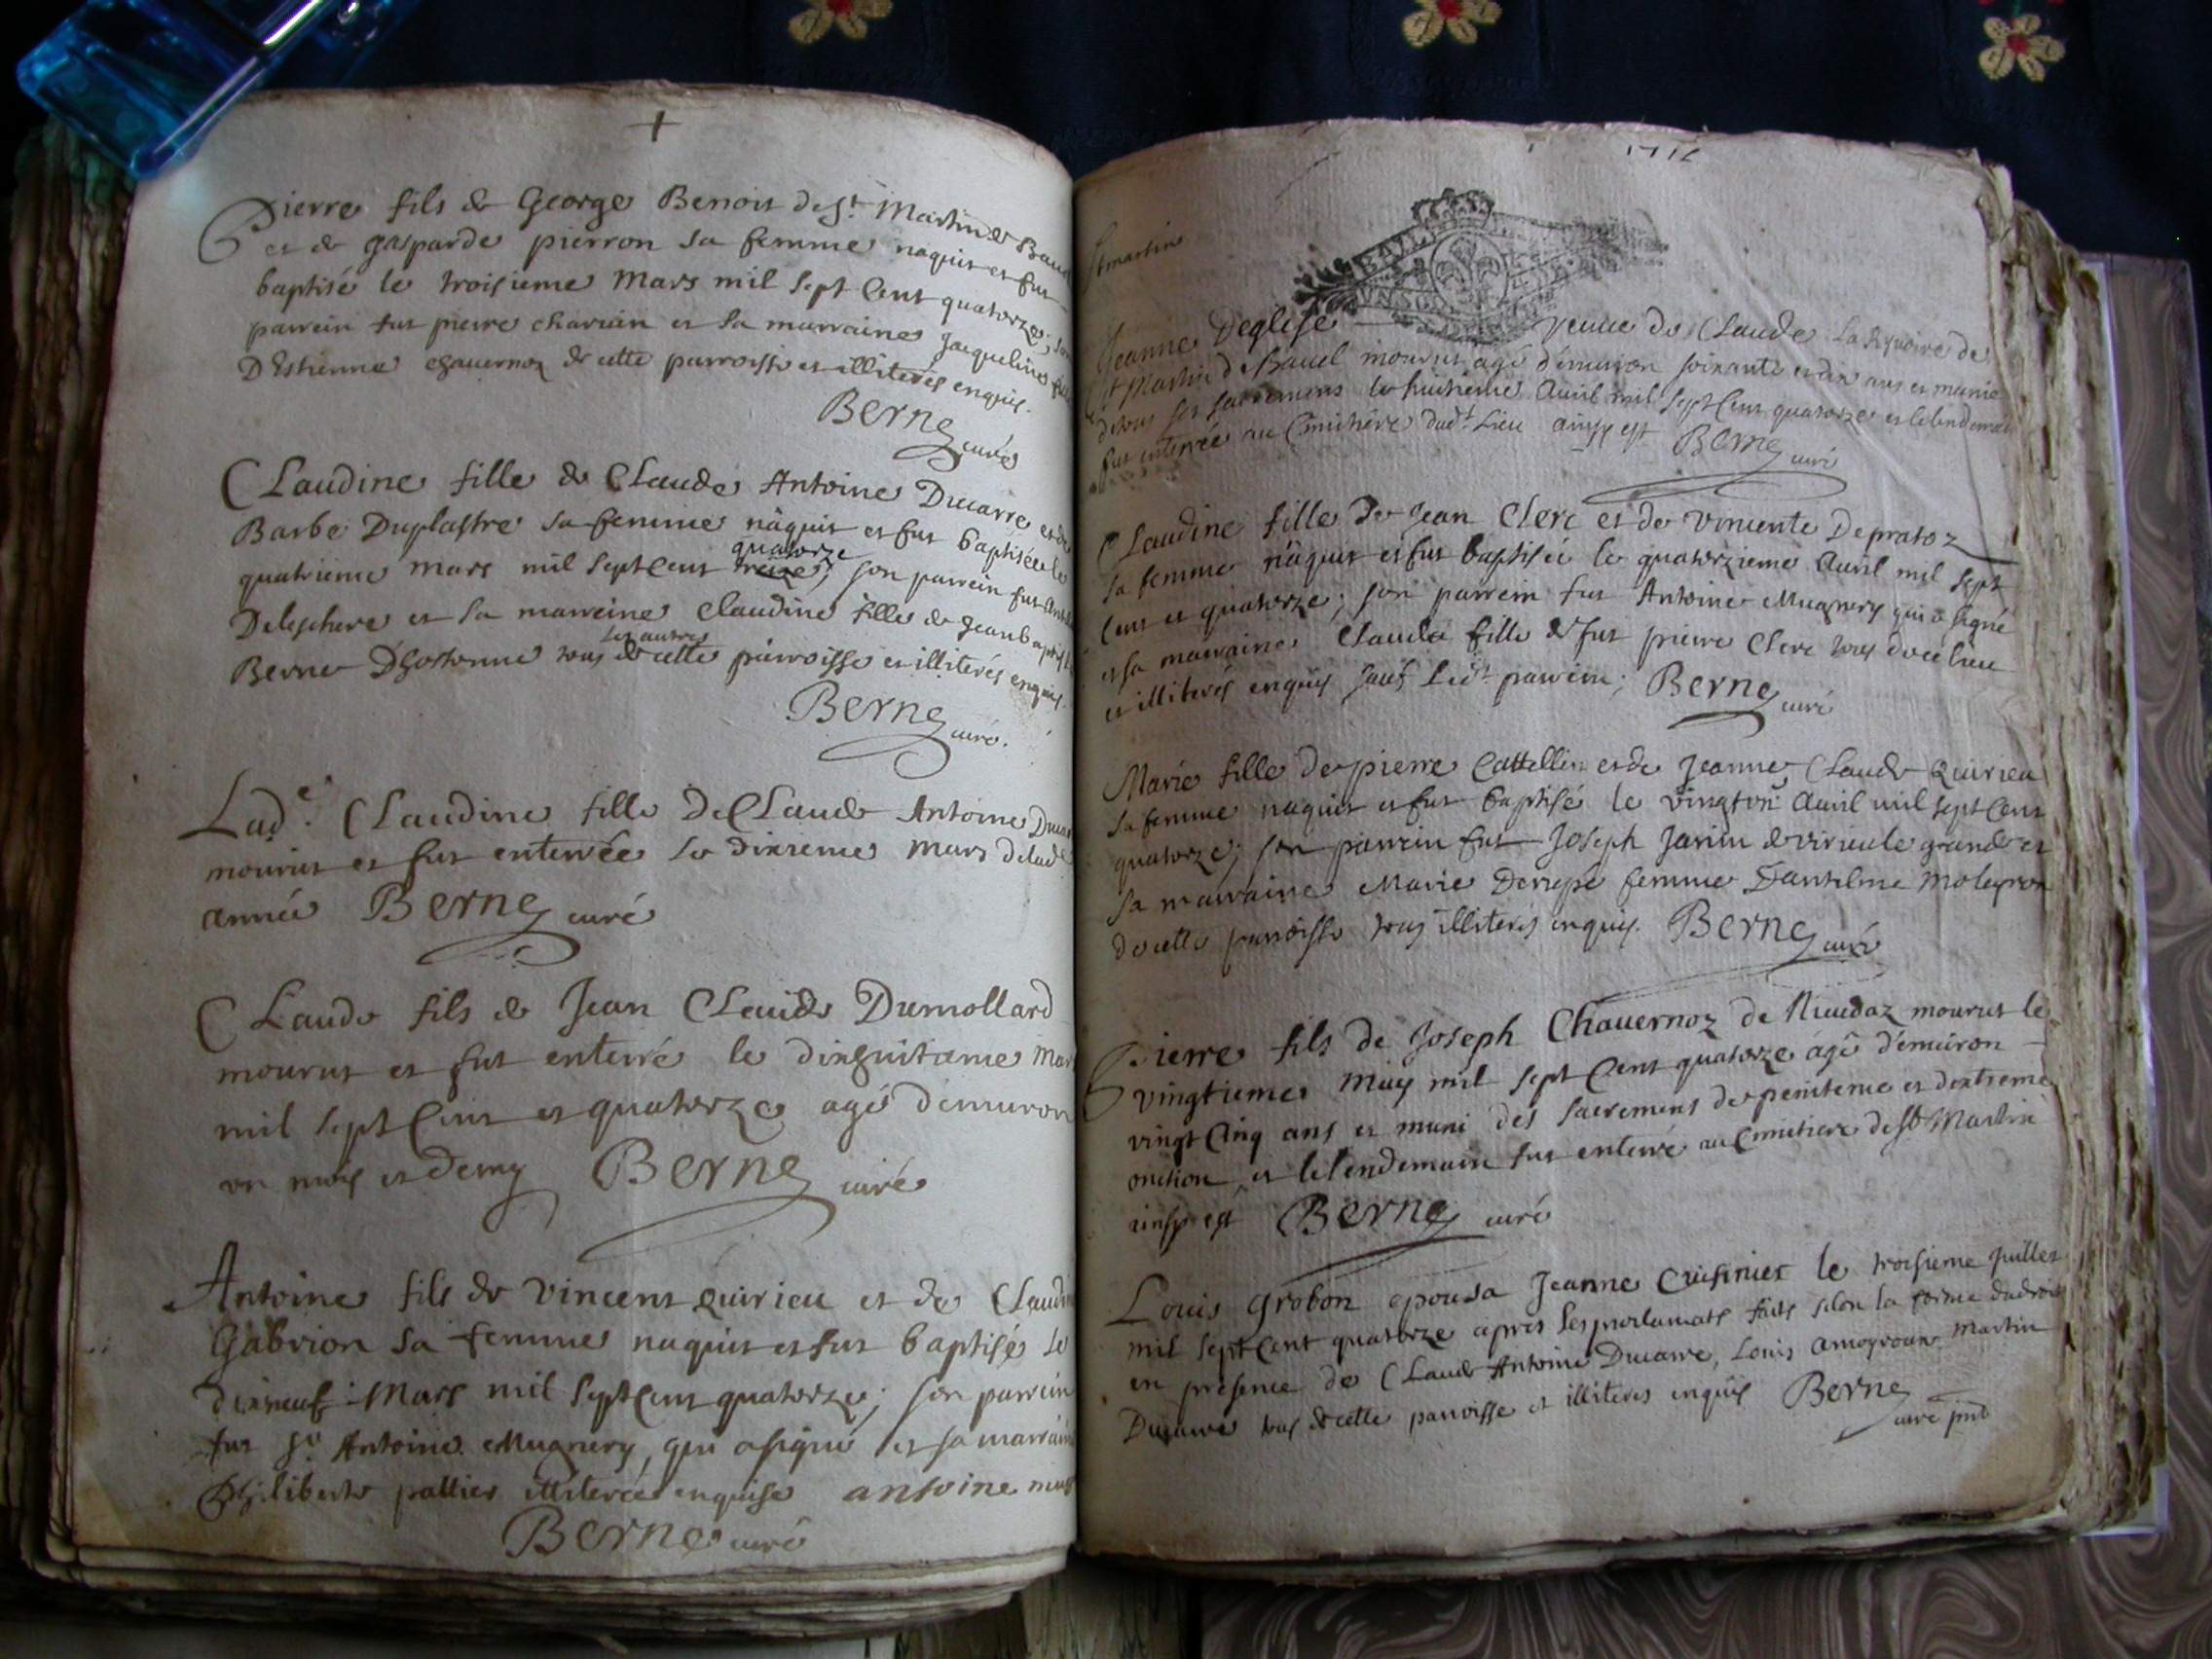 Pierre fils de George Benoit de St Martin de Bauel
et de gasparde pierron sa femme naquit et fut
baptisé le troisieme Mars mil sept Cent quatorze; son
parrein fut pierre charuin et sa marraine Jacqueline fille
D'Estienne chauernoz de cette parroisse et illiterés enquis.
Berne curé
Claudine fille de Claude Antoine Ducarre et de
Barbe Duplastre sa femme nâquit et fut baptisée le
quatorze
quatrieme mars mil sept Cent treize; son parrein fut
Deleschere et sa marreine Claudine fille de Jean baptiste
les autres
Berne tous de cette parroisse et illiterés enquis.
Berne curé.
Lad.e Claudine fille de Claude Antoine Ducarre
mourut et fut enterrée le dixieme Mars de lad.e
année Berne curé
Claude fils de Jean Claude Dumollard
mourut et fut enterré le dixhuitieme Mars
mil sept Cent et quatorze agé d'enuiron
un mois et demy Berne curé
Antoine fils de vincent Quirieu et de Claudine
Gabrion sa femme naquit et fut baptisé le
dixneuf Mars mil sept Cent quatorze; son parrein
fut Sr Antoine Mugnery, qui a signé et sa marraine
Philiberte pallier illiterée enquise antoine mug
Berne curé
1714
St martin
BAIL
Jeanne Deglise veuue de Claude de
St Martin de Bauel mourut agé d'enuiron soixante et dix ans et munie
de tous ses sacremens le huitieme Auril mil sept Cent quatorze et le lendemain
fut enterrée au Cimitiere dud.t Lieu ainsy est Berne curé
Claudine fille de Jean Clerc et de vincente Depratoz
sa femme nâquit et fut baptisée le quatorzieme Auril mil sept
Cent et quatorze; son parrein fut Antoine Mugnery qui a signé
et sa marraine Clauda fille de fut pierre Clerc tous du ce lieu
et illiterés enquis sauf led.t parrein; Berne curé
Marie fille de pierre Cattellin et de Jeanne Claude Quirieu
sa femme naquit et fut baptisé le Auril mil sept Cent
quatorze; son parrein fut Joseph Janin de virieu le grand et
sa marraine Marie Derupe femme D'antelme Moleyron
de cette parroisse tous illiterés enquis. Berne curé
Pierre fils de Joseph Chauernoz de mourut le
vingtieme May mil sept Cent quatorze agé d'enuiron
vingt Cinq ans et muni des sacremens de penitence et d'extreme
onction, et le lendemain fut enterré au Cimitiere de St Martin
ainsy est Berne curé
Louis Grobon epousa Jeanne Cuisinier le troisieme Juillet
mil sept Cent quatorze apres les proclamats faits selon la forme du droit
en presence de Claude Antoine Ducarre, Louis Martin
Ducarre tous de cette parroisse et illiteres enquis Berne
curé pnt